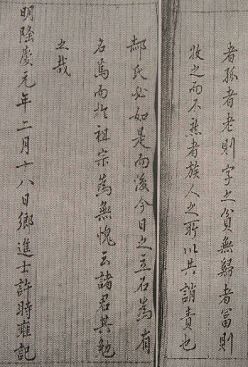 者孤者老則字之貧無歸者富則
收之而不然者族人之所以共誚責也
郝氏必如是而後今日之立石為有
名焉而於祖宗為無愧云諸君其勉
之哉
明隆慶元年二月十八日鄉進士許時雍記